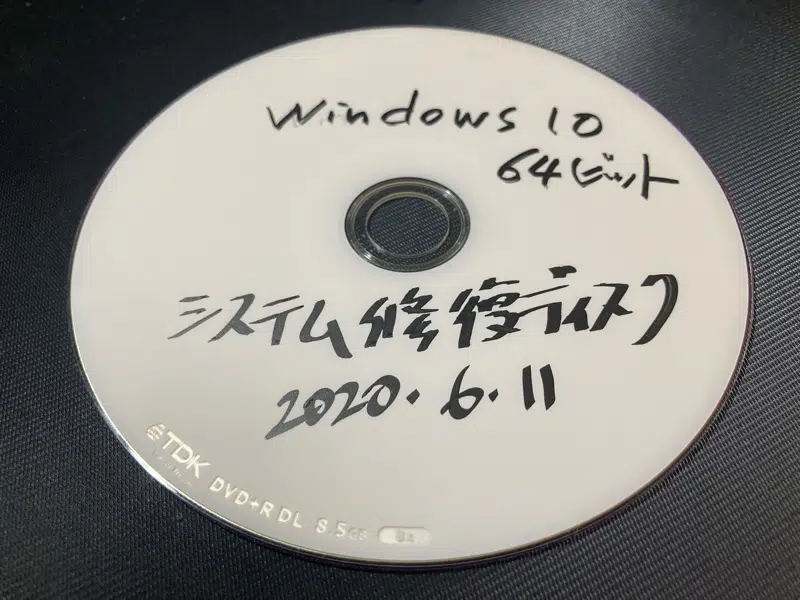 Windows 10
64ビット
システム修復ディスク
2020.6.11
TDK
DVD+R DL 8.5GB 8x